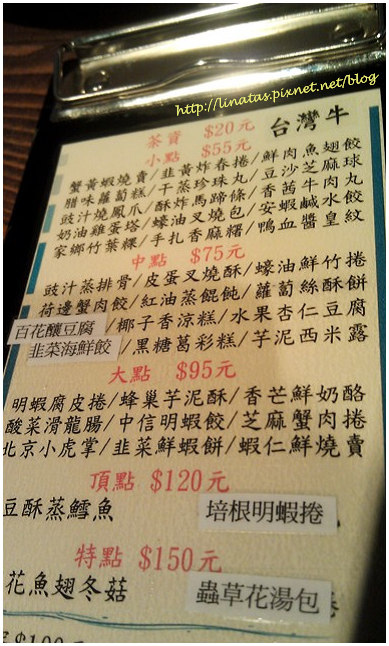 http://linatas.pixnet.net/blog
茶資 $20元 台灣牛
小點 $55元
蟹黃蝦燒賣/韭黃炸春捲/鮮肉魚翅餃
腊味蘿蔔糕/干蒸珍珠丸/豆沙芝麻球
豉汁燒鳳爪/酥炸馬蹄條/香茜牛肉丸
奶油雞蛋塔/蠔油叉燒包/安蝦鹹水餃
家鄉竹葉粿/手扎香麻糬/鴨血醬皇紋
中點 $75元
豉汁蒸排骨/皮蛋叉燒酥/蠔油鮮竹捲
荷邊蟹肉餃/紅油蒸餛飩/蘿蔔絲酥餅
百花釀豆腐/椰子香涼糕/水果杏仁豆腐
韭菜海鮮餃/黑糖葛彩糕/芋泥西米露
大點 $95元
明蝦腐皮捲/蜂巢芋泥酥/香芒鮮奶酪
酸菜滑龍腸/中信明蝦餃/芝麻蟹肉捲
北京小虎掌/韭菜鮮蝦餅/蝦仁鮮燒賣
頂點 $120元
豆酥蒸鱈魚 培根明蝦捲
特點 $150元
花魚翅冬菇 蟲草花湯包 捲
$190元